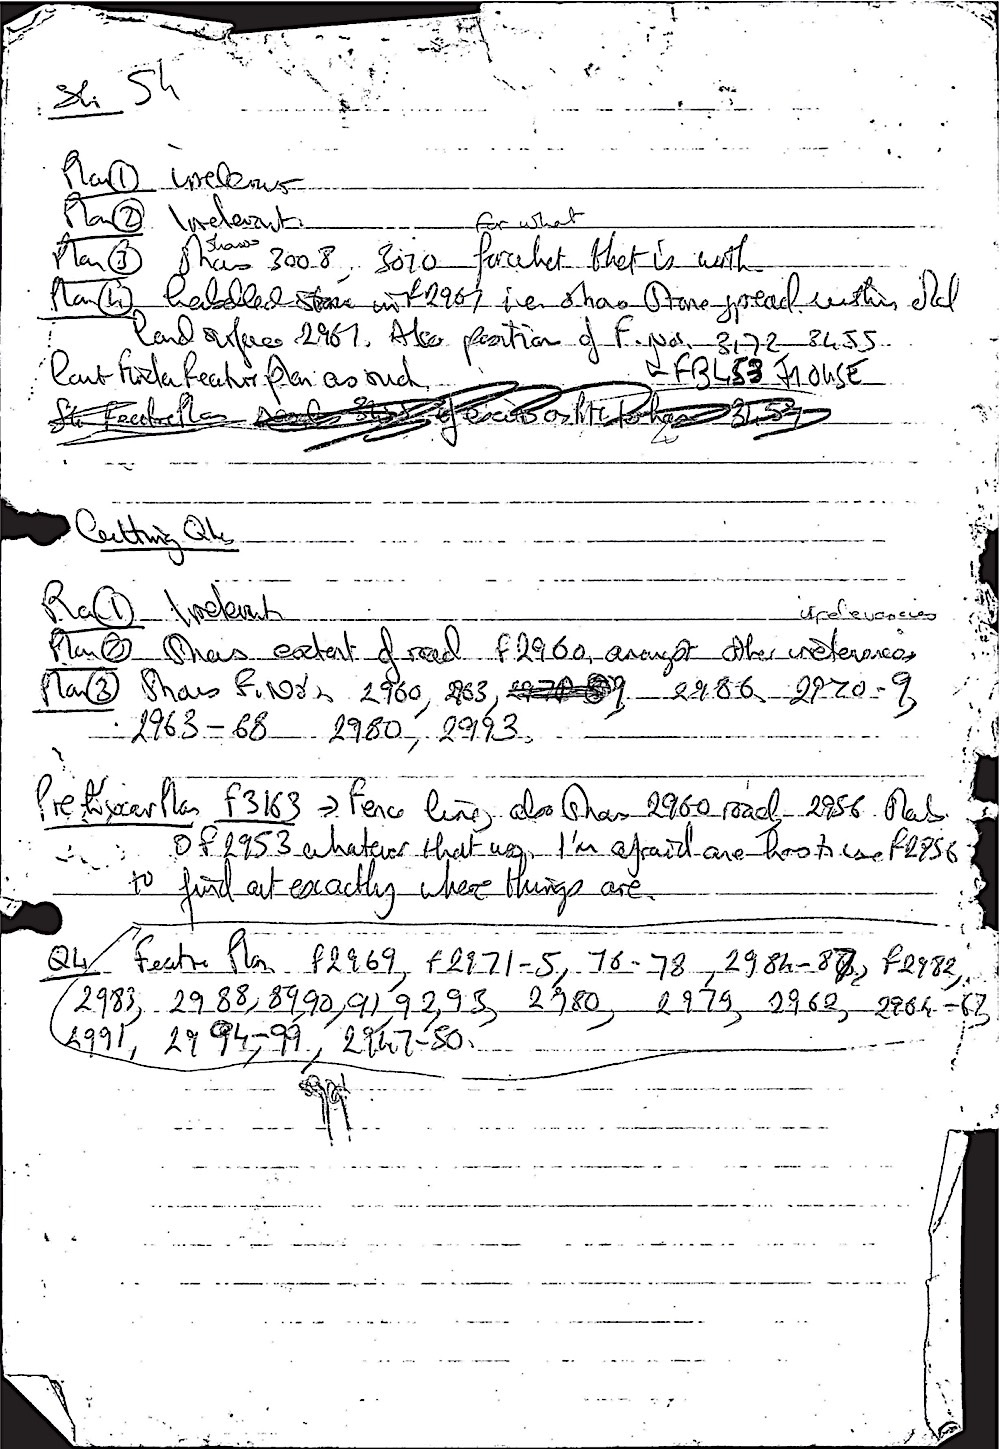 S4
Plan ① Irrelevant
Plan ② Irrelevant
for what
Plan ③ Shows 3008, 3010 for what that is worth
shows
Plan ④ labelled stone in F2967 i.e. shows Stone spread within Old
land surface 2967. Also position of F. Nos. 3172 3455
& F3453 HOUSE
Cant find a Feature plan as such
Cutting Q4
Plan ① Irrelevant
irrelevancies
Plan ② Shows extent of road F2960, amongst other irrelevancies
Plan ③ Shows F. Nos. 2960, 2986 2970-9,
2963-68 2980, 2993.
F3163 → Fence line, also Shows 2960 road, 2956 Slab
of 2953 whatever that was, I'm afraid one has to use F2956
to find out exactly where things are.
Q4 Feature Plan F2969, F2971-5, 76-78, 2984-87, F2982,
2983, 2988, 8990, 91, 92, 93, 2980, 2979, 2962, 2964-67,
2991, 2994-99, 2947-50.